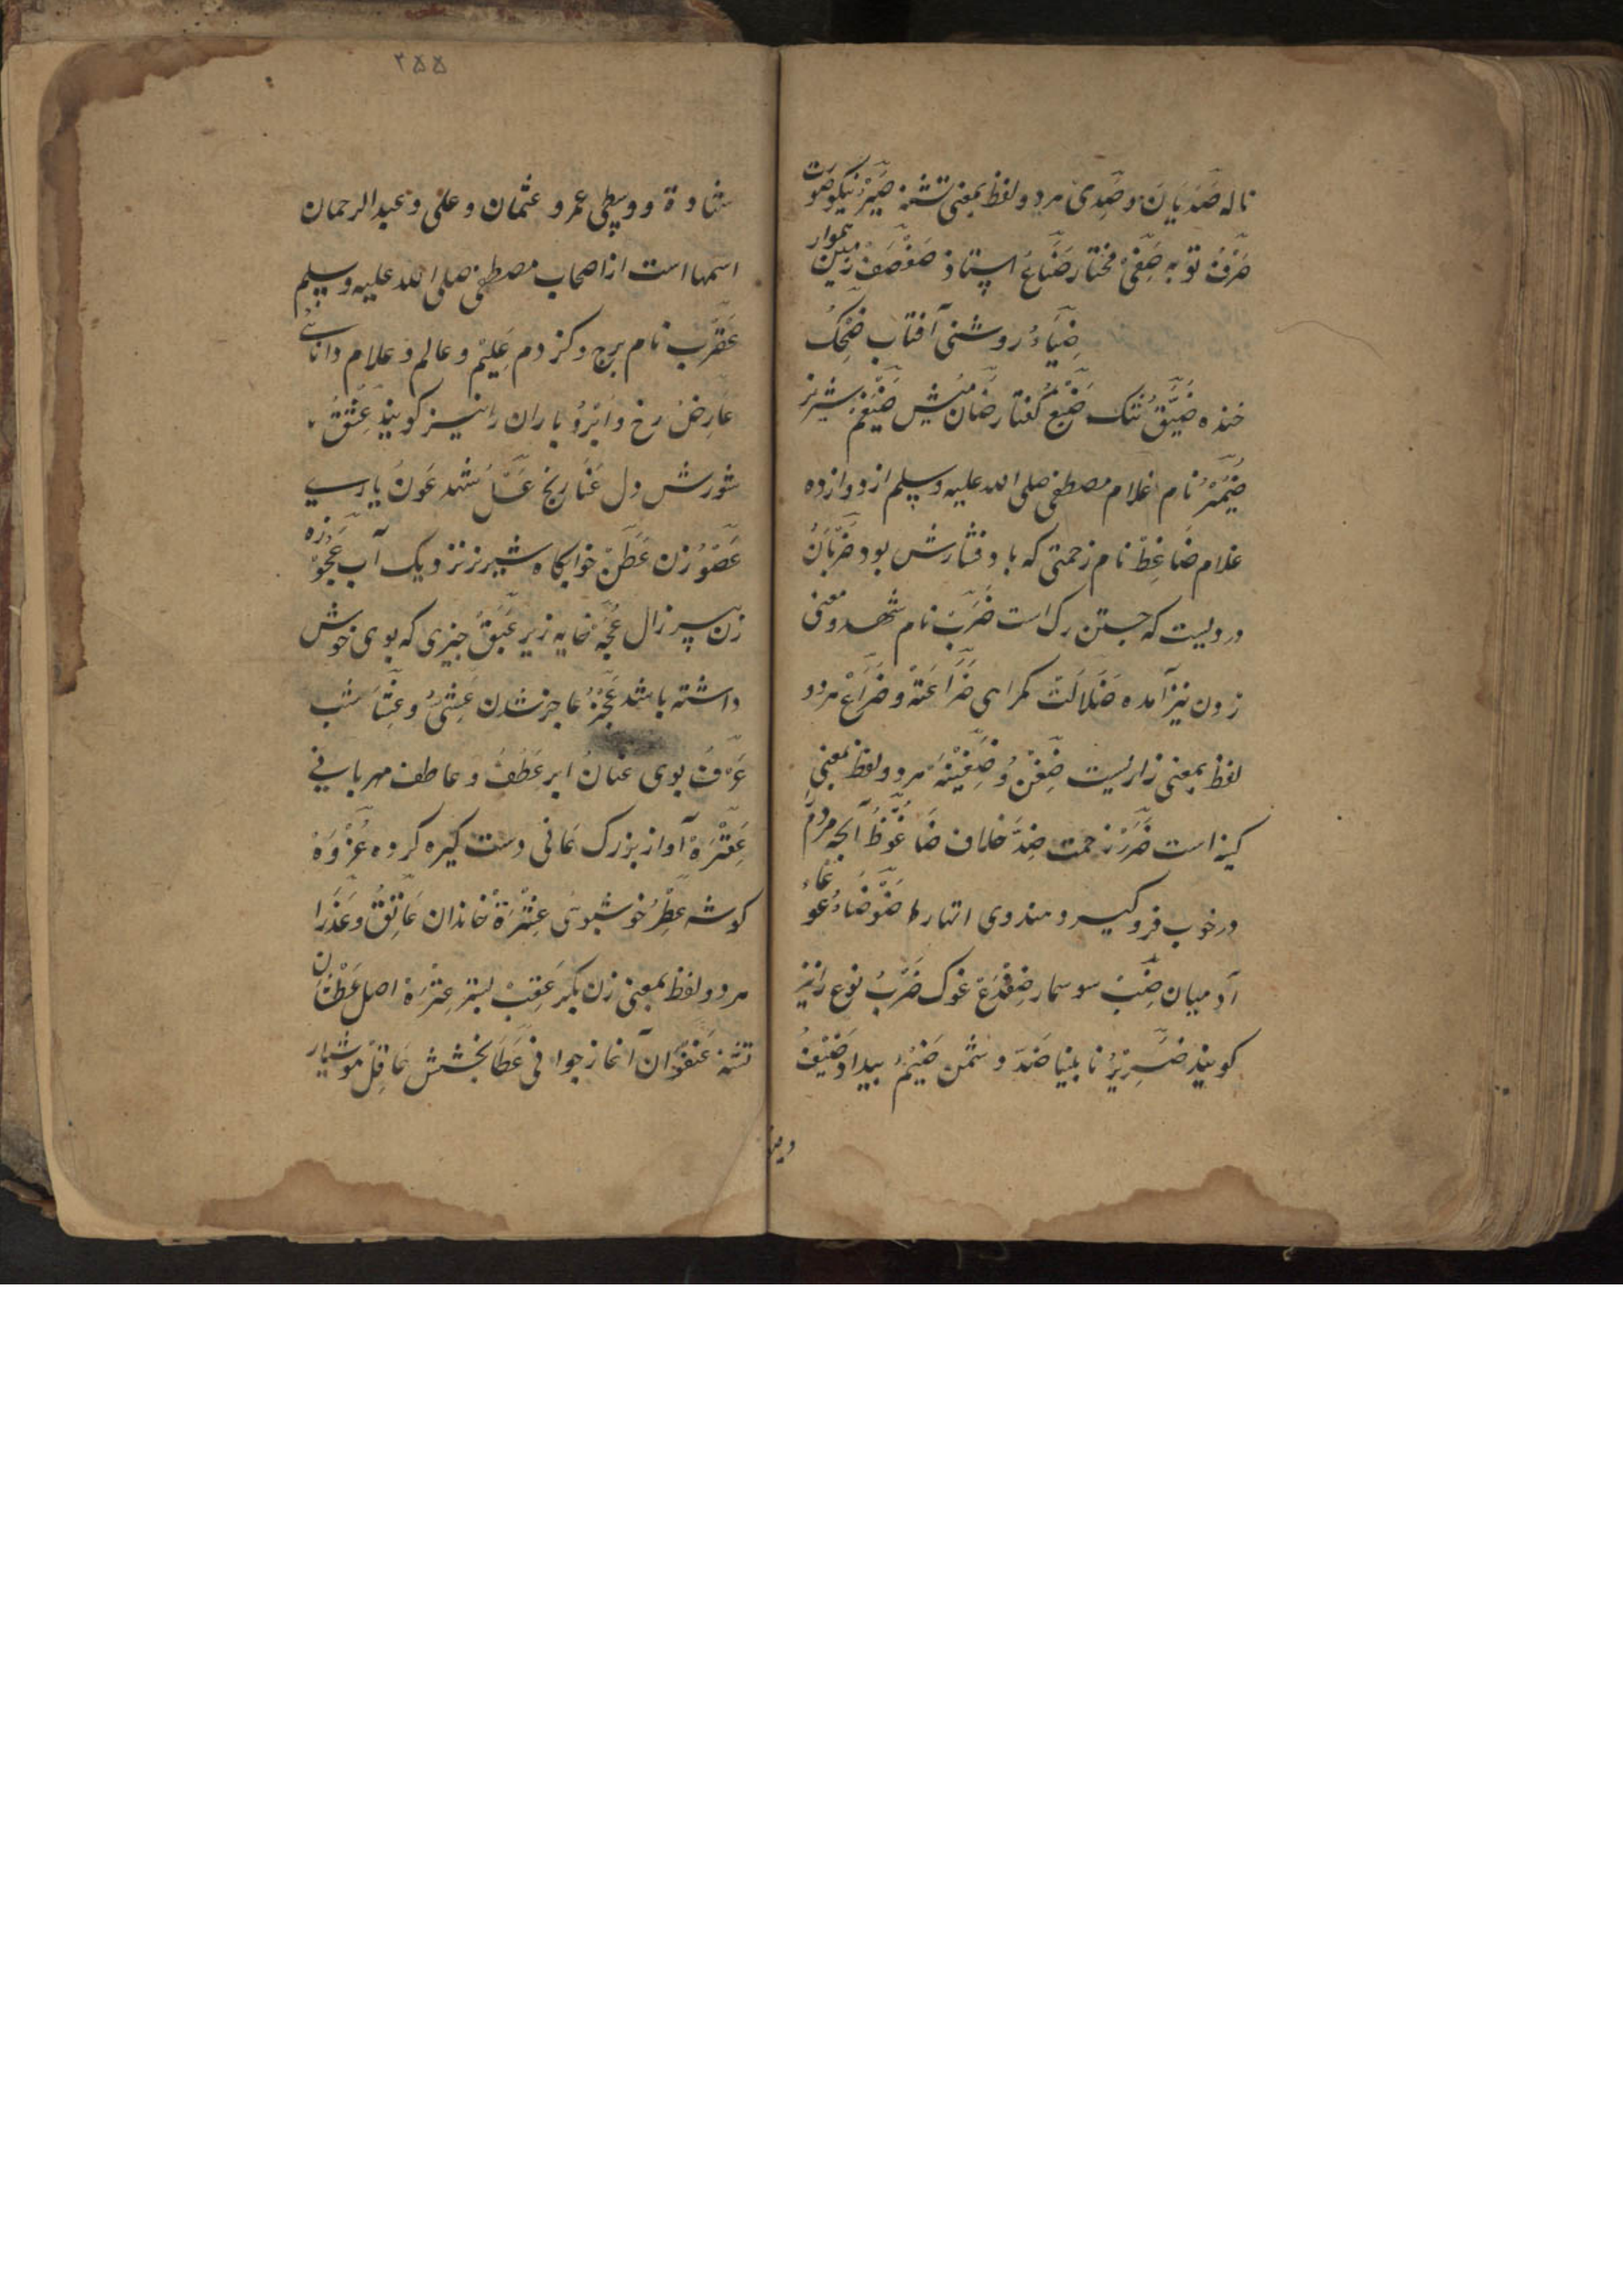 ناله صَدْیَان و صَدِی هر دو لفظ بمعنی تشنه صَیِّرْ نیکو صورت
صَرْف توبه صَفِّی مختار صَنَّاعْ استاد صَفْصَفْ زمین هموار
ضِیَاءُ روشنی آفتاب ضِحْکُ
خنده ضَیِّقْ تنک ضَبُعْ کفتار ضَان میش ضَیْغَمْ شیر نر
ضُمَیْر نام غلام مصطفی صلی الله علیه وسلم از دوازده
غلام ضَاغِطْ نام زحمتی که با دفشارش بود ضَرَبَانْ
دردیست که جستن رک است ضَرَبْ نام شهد و معنی
زدن نیز آمده ضَلَالَتْ کمراهی ضَرَاعَتْ و ضَرَاعْ هر دو
لفظ بمعنی زاریست ضِغْنْ و ضَغِیْنَه هر دو لفظ بمعنی
کینه است ضَرَرْ زحمت ضِدّ خلاف ضَاغُوْظْ آنجه مردم
در خوب فرو کیرد و هندوی انتهارا ضَوْضَاءُ غوغاء
آدمیان ضَبّ سوسمار ضِفْدَعْ غوک ضَرْبُ نوع را نیز
کویند ضَرِیْرْ نابینا ضَدّ دشمن ضَیْمُ بیداد ضَیْفُ
۲۵۵
عمرو عثمان و علی و عبدالرحمان
اسمها است از اصحاب مصطفی صلی الله علیه وسلم
عَقْرَب نام برج و کزدم عَلِیْم و عالم و علام دانائے
عَارِضْ رخ و ابرو باران را نیز کویند عِشْق
شورش دل عَنَا رنج شهد عَوْن یاری
زن عَطَنْ خوابکاه شتر نزدیک آب عَجُوْزه
زن پیر زال عُجَّه خایه ریز عَبَقْ چیزی که بوی خوش
داشته باشد عَجْز عاجز شدن عَشِیّ و عِشَا شب
عَرْف بوی عَنَان ابر عَطْف و عاطف مهربانی
آواز بزرک عَانی دست کیره کرده عُرْوَه
کوشه عِطْر خوشبوی عِتْرَة خاندان عَاتِقْ و عَذْرَا
هر دو لفظ بمعنی زن بکر عَقِبْ اصل عَطْشَان
تشنه عُنْفُوَان آغاز جوانی عَطَا بخشش عَاقِل هوشیار